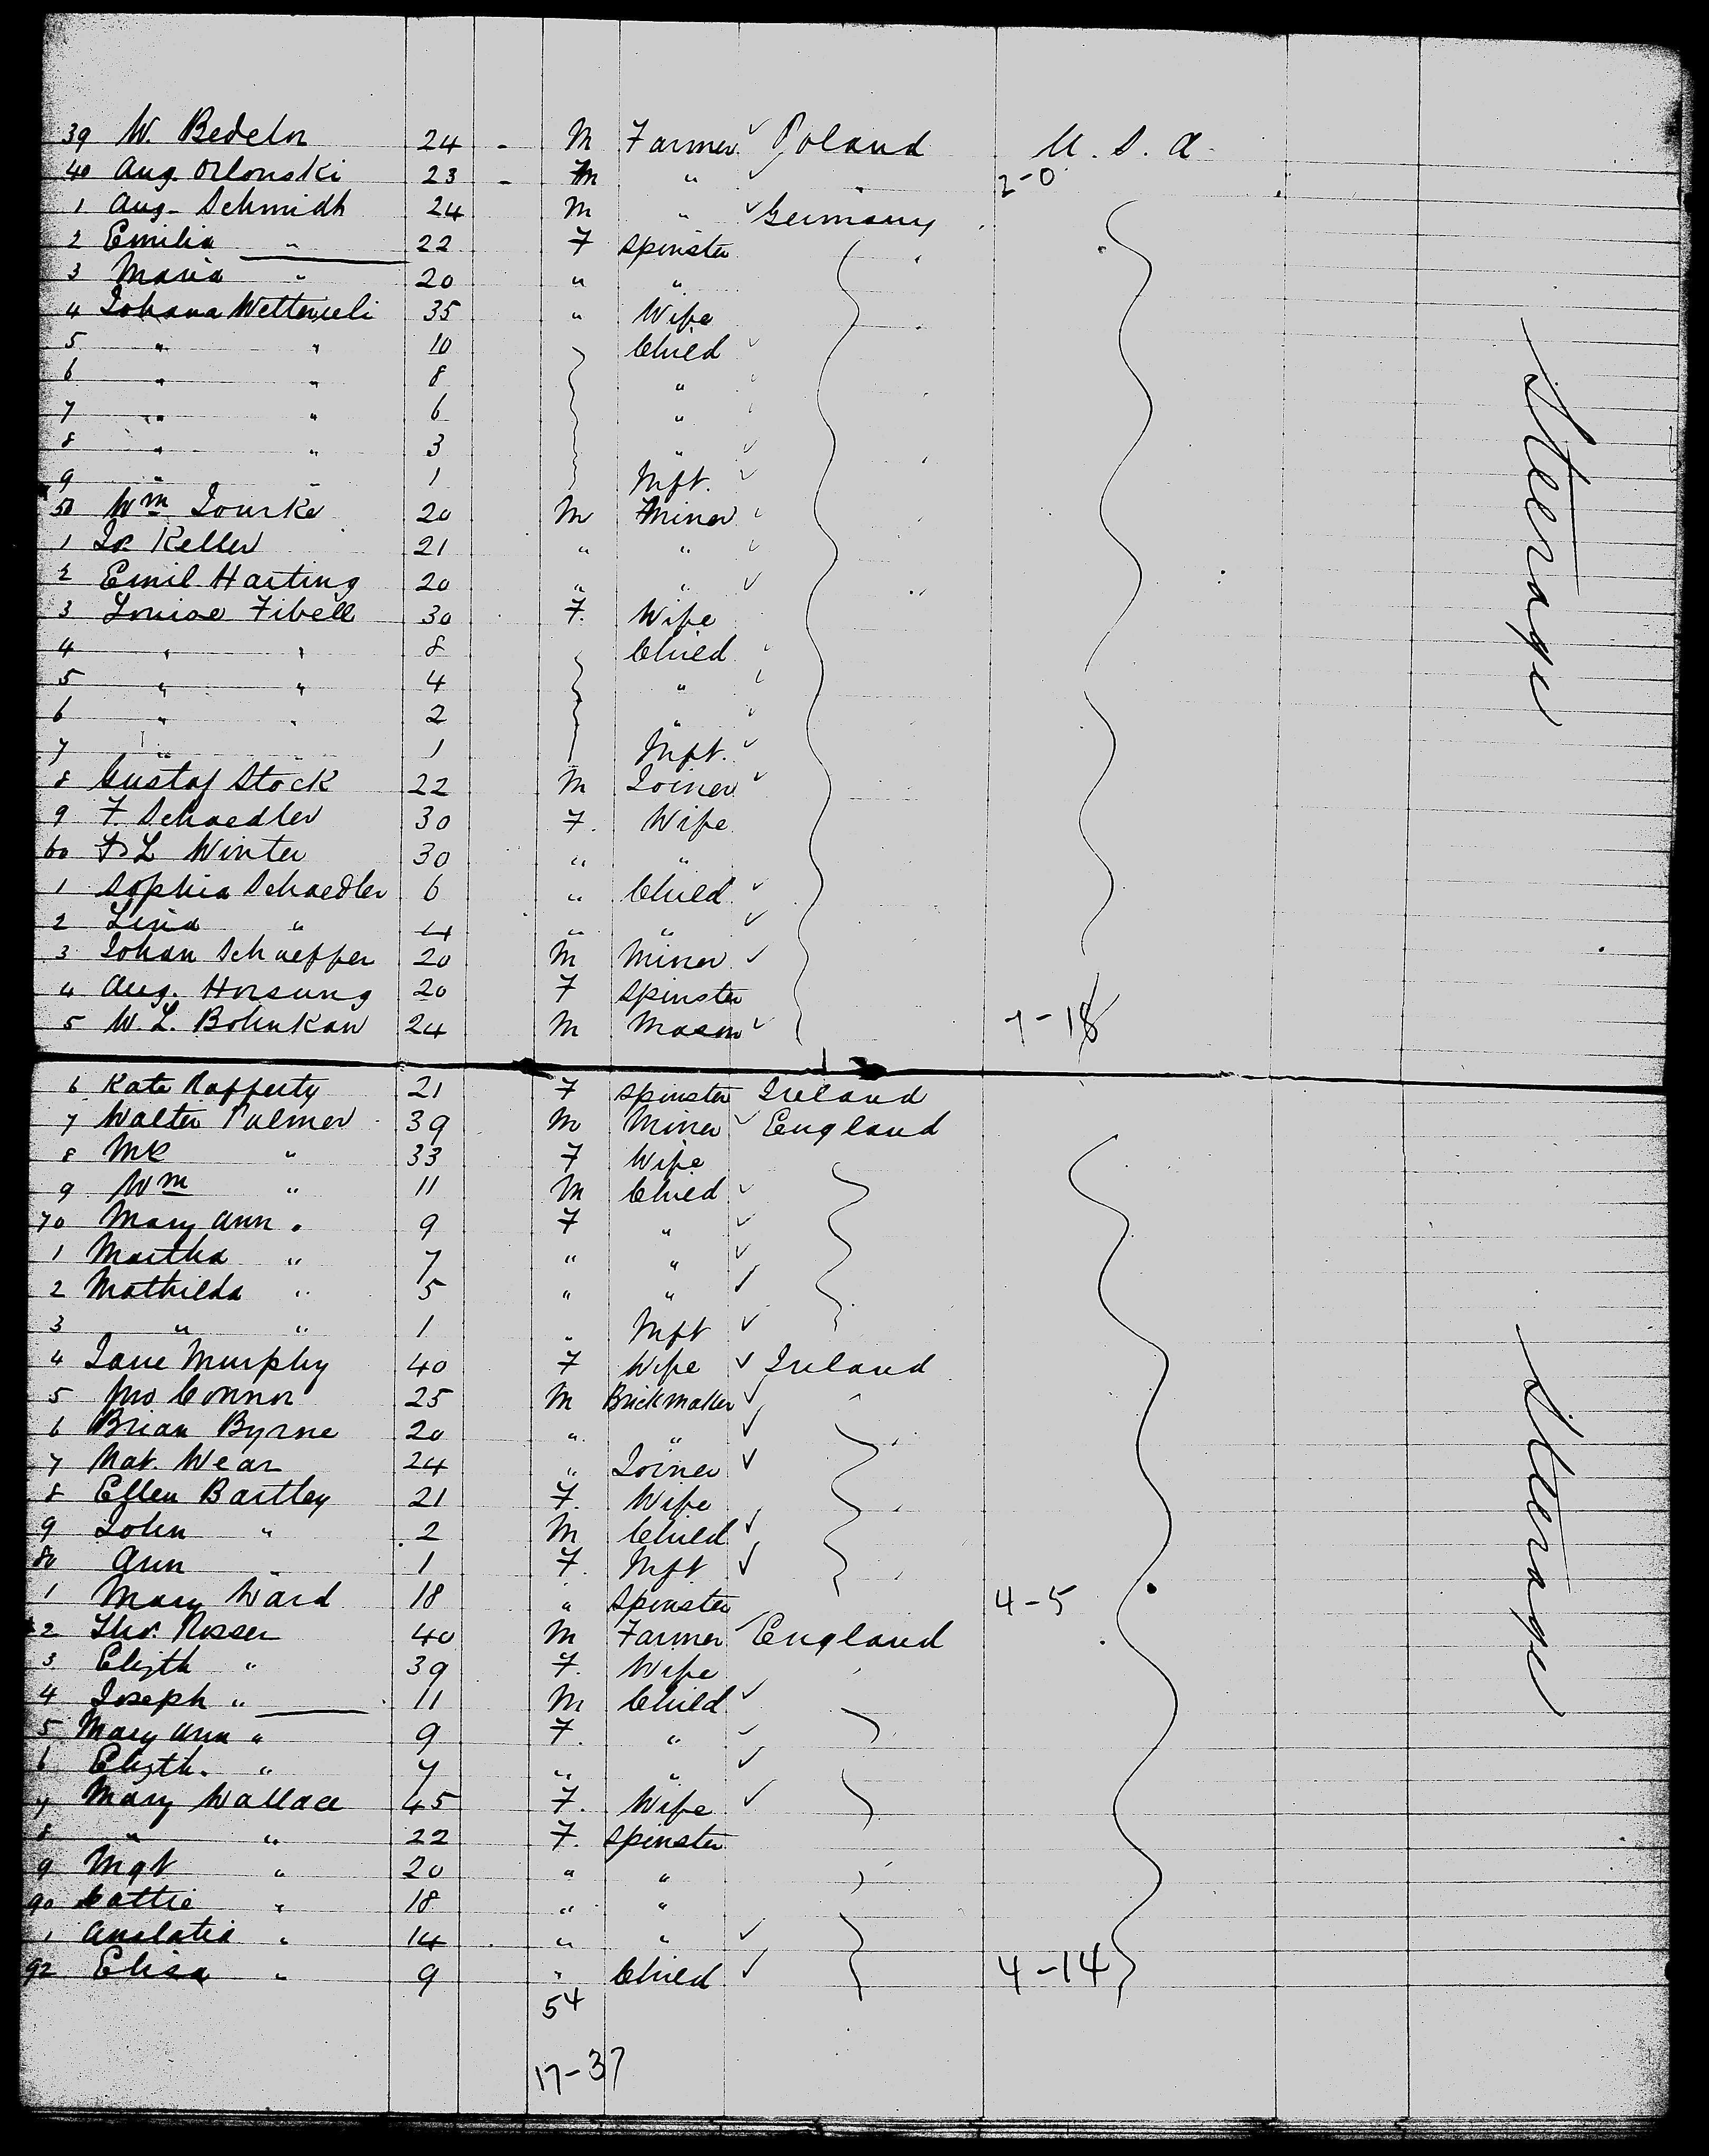 39 W. Bedeln 24 - M Farmer ✓ Poland U. S. A.
40 Aug. Orlonski 23 - M " ✓ 2-0
1 Aug. Schmidt 24 M " ✓ Germany
2 Emilia " 22 F Spinster
3 Maria " 20 " "
4 Johana 35 " Wife
5 " " 10 Child ✓
6 " " 8 " ✓
7 " " 6 " ✓
8 " " 3 " ✓
9 " " 1 Inft. ✓
50 Wm Jourke 20 M Miner ✓
1 Jo. Keller 21 " " ✓
2 Emil Harting 20 " " ✓
3 Louise Fibell 30 F. Wife
4 " " 8 Child ✓
5 " " 4 " ✓
6 " " 2 " ✓
7 " " 1 Inft. ✓
8 Gustaf Stock 22 M Joiner ✓
9 F Schaedler 30 F. Wife
60 L Winter 30 " "
1 Sophia Schaedler 6 " Child ✓
2 Lina " 4 " " ✓
3 Johan Schaeffer 20 M Miner ✓
4 Aug. Horsung 20 F Spinster
5 W. L. Bohnkan 24 M Mason ✓ 7-18
Steerage
6 Kate Rafferty 21 F Spinster Ireland
7 Walter Palmer 39 M Miner ✓ England
8 " 33 F Wife
9 Wm " 11 M Child ✓
70 Mary Ann " 9 F " ✓
1 Martha " 7 " " ✓
2 Mathilda " 5 " " ✓
3 " " 1 " Inft ✓
4 Jane Murphy 40 F Wife ✓ Ireland
5 Jno Connor 25 M Brickmaker ✓
6 Brian Byrne 20 " " ✓
7 Nat. Wear 24 " Joiner ✓
8 Ellen Bartley 21 F. Wife
9 John " 2 M Child ✓
80 Ann 1 F. Inft ✓
1 Mary Ward 18 " Spinster 4-5
2 Tho. Rosser 40 M Farmer ✓ England
3 Elizth " 39 F. Wife
4 Joseph " 11 M Child ✓
5 Mary Ann " 9 F. " ✓
6 Elizth. " 7 " " ✓
7 Mary Wallace 45 F. Wife ✓
8 " " 22 F. Spinster
9 Mgt " 20 " "
90 Cattie " 18 " "
1 Anslatia " 14 " " ✓
92 Elisa " 9 " Child ✓ 4-14
Steerage
54
17-37